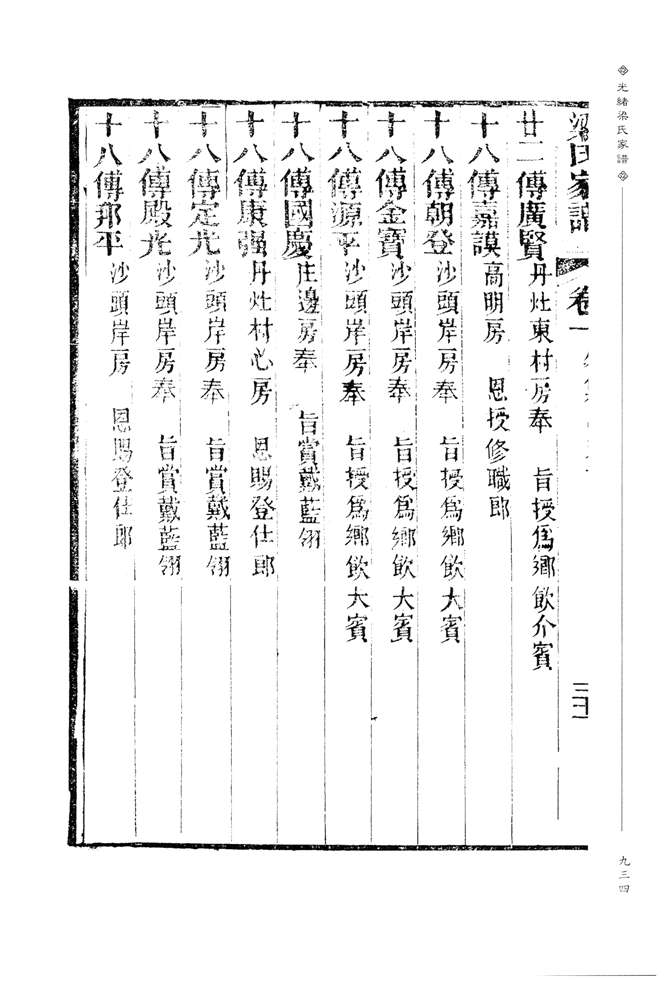 光緒梁氏家譜
梁氏家譜 卷一
廿二傳廣賢丹灶東村房奉 旨授爲鄉飲介賓
十八傳嘉謨高明房 恩授修職郎
十八傳朝登沙頭岸房奉 旨授爲鄉飲大賓
十八傳金寶沙頭岸房奉 旨授爲鄉飲大賓
十八傳源平沙頭岸房奉 旨授爲鄉飲大賓
十八傳國慶庄邊房奉 旨賞戴藍翎
十八傳康强丹灶村心房 恩賜登仕郎
十八傳定光沙頭岸房奉 旨賞戴藍翎
十八傳殿光沙頭岸房奉 旨賞戴藍翎
十八傳邦平沙頭岸房 恩賜登仕郎
九三四